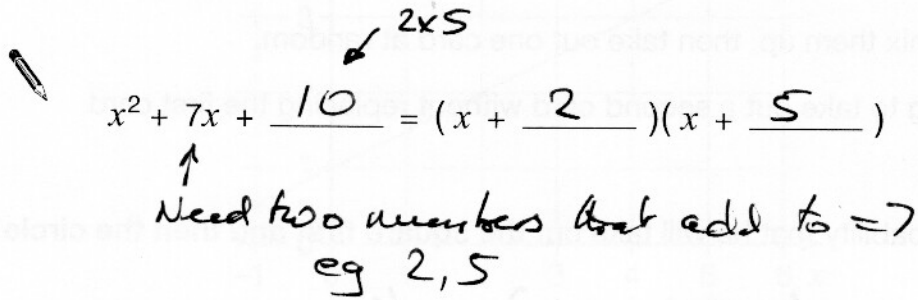 2x5
x² + 7x + 10 = ( x + 2 )( x + 5 )
Need two numbers that add to = 7
eg 2, 5